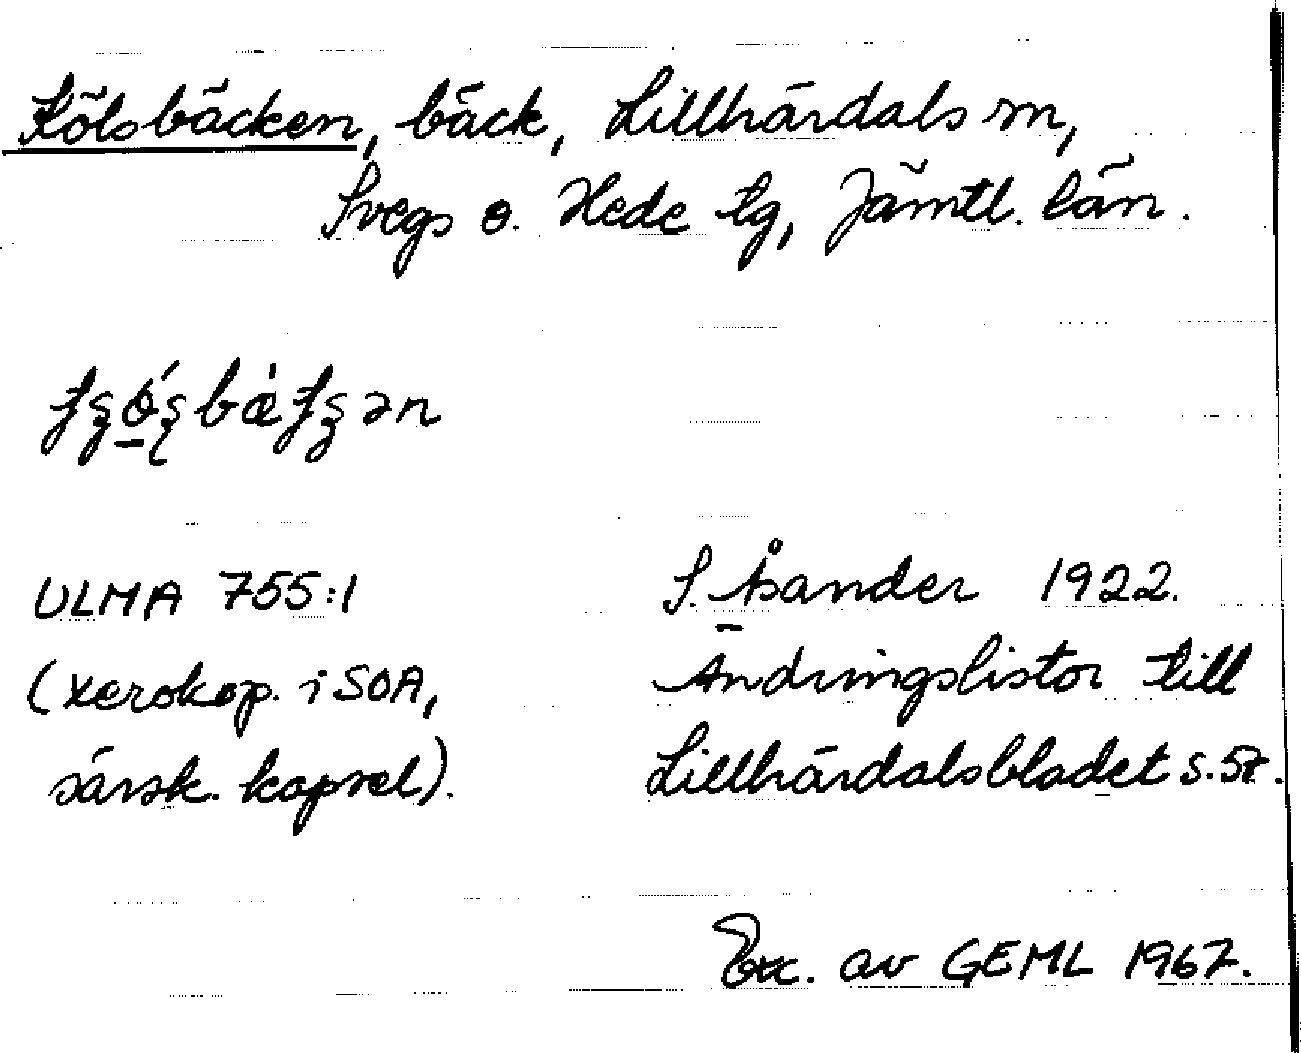 Kölsbäcken, bäck, Lillhärdals sn,
Svegs o. Hede tg, Jämtl. län.
ULMA 755:1
S. Åsander 1922.
(xerokop. i SOA,
Ändringslistor till
särsk. kapsel).
Lillhärdalsbladet s. 57.
Exc. av GEML 1967.